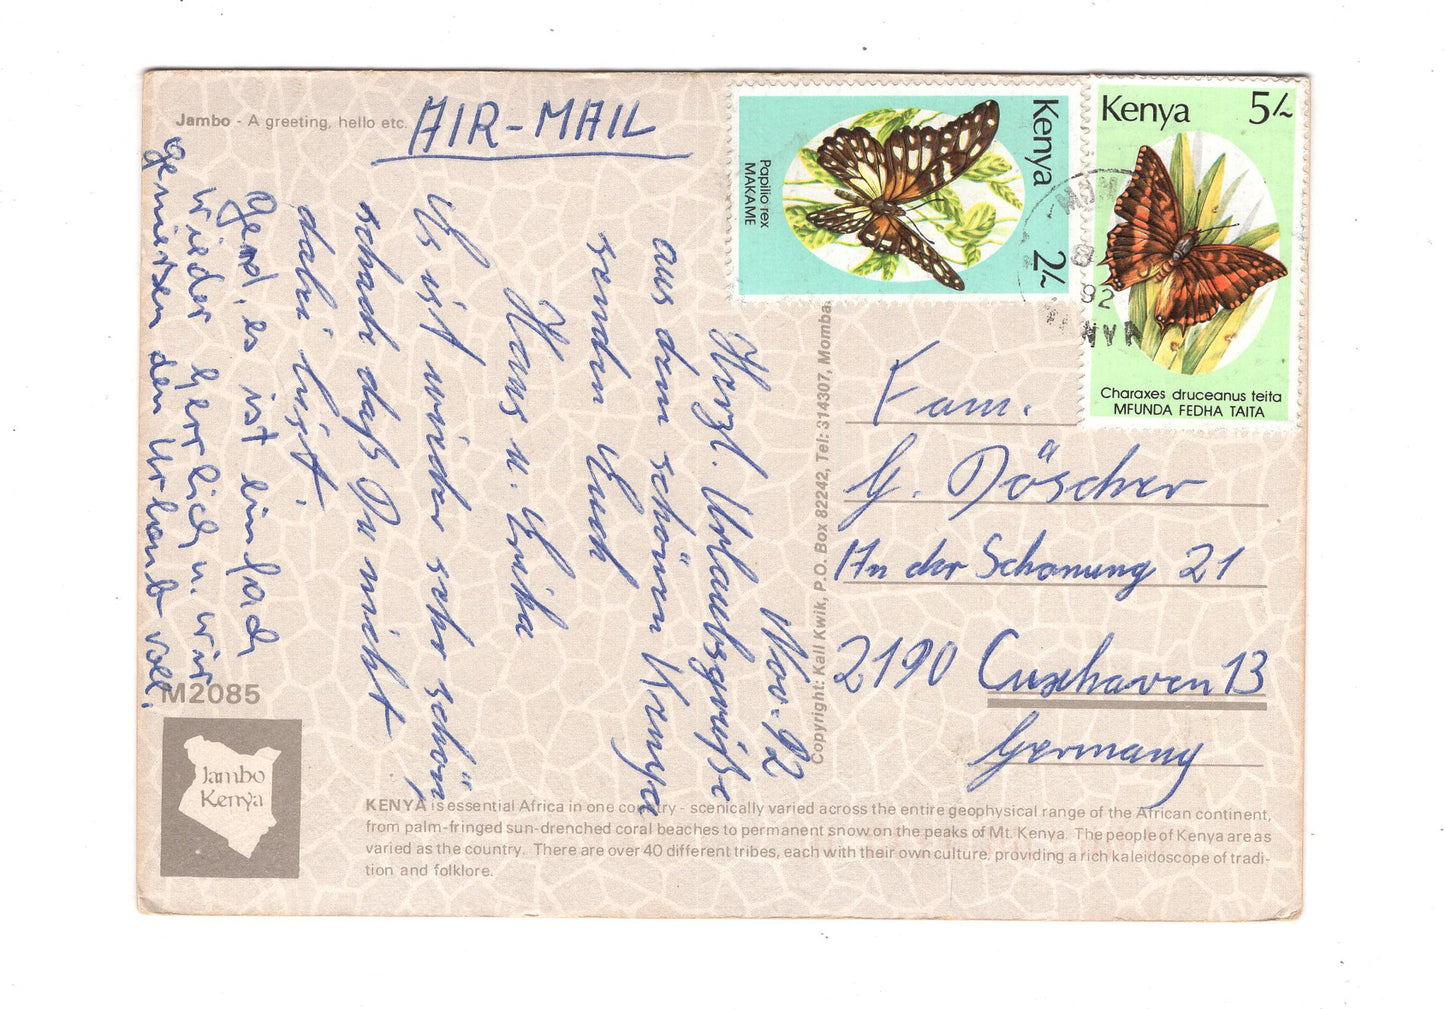 Jambo - A greeting, hello etc.
AIR-MAIL
Nov. 92
Herzl. Urlaubsgrüße
aus dem schönen Kenya
senden Euch
Hans u. Erika
Es ist wieder sehr schön,
schade daß Du nicht
dabei bist.
Gerd, es ist einfach
wieder herrlich u. wir
genießen den Urlaub voll.
M2085
Jambo
Kenya
Kenya 2/-
Papilio rex
MAKAME
Kenya 5/-
Charaxes druceanus teita
MFUNDA FEDHA TAITA
92
Copyright: Kall Kwik, P.O. Box 82242, Tel: 314307, Momba
Fam.
G. Döscher
An der Schonung 21
2190 Cuxhaven 13
Germany
KENYA is essential Africa in one country - scenically varied across the entire geophysical range of the African continent,
from palm-fringed sun-drenched coral beaches to permanent snow on the peaks of Mt. Kenya. The people of Kenya are as
varied as the country. There are over 40 different tribes, each with their own culture, providing a rich kaleidoscope of tradi-
tion and folklore.